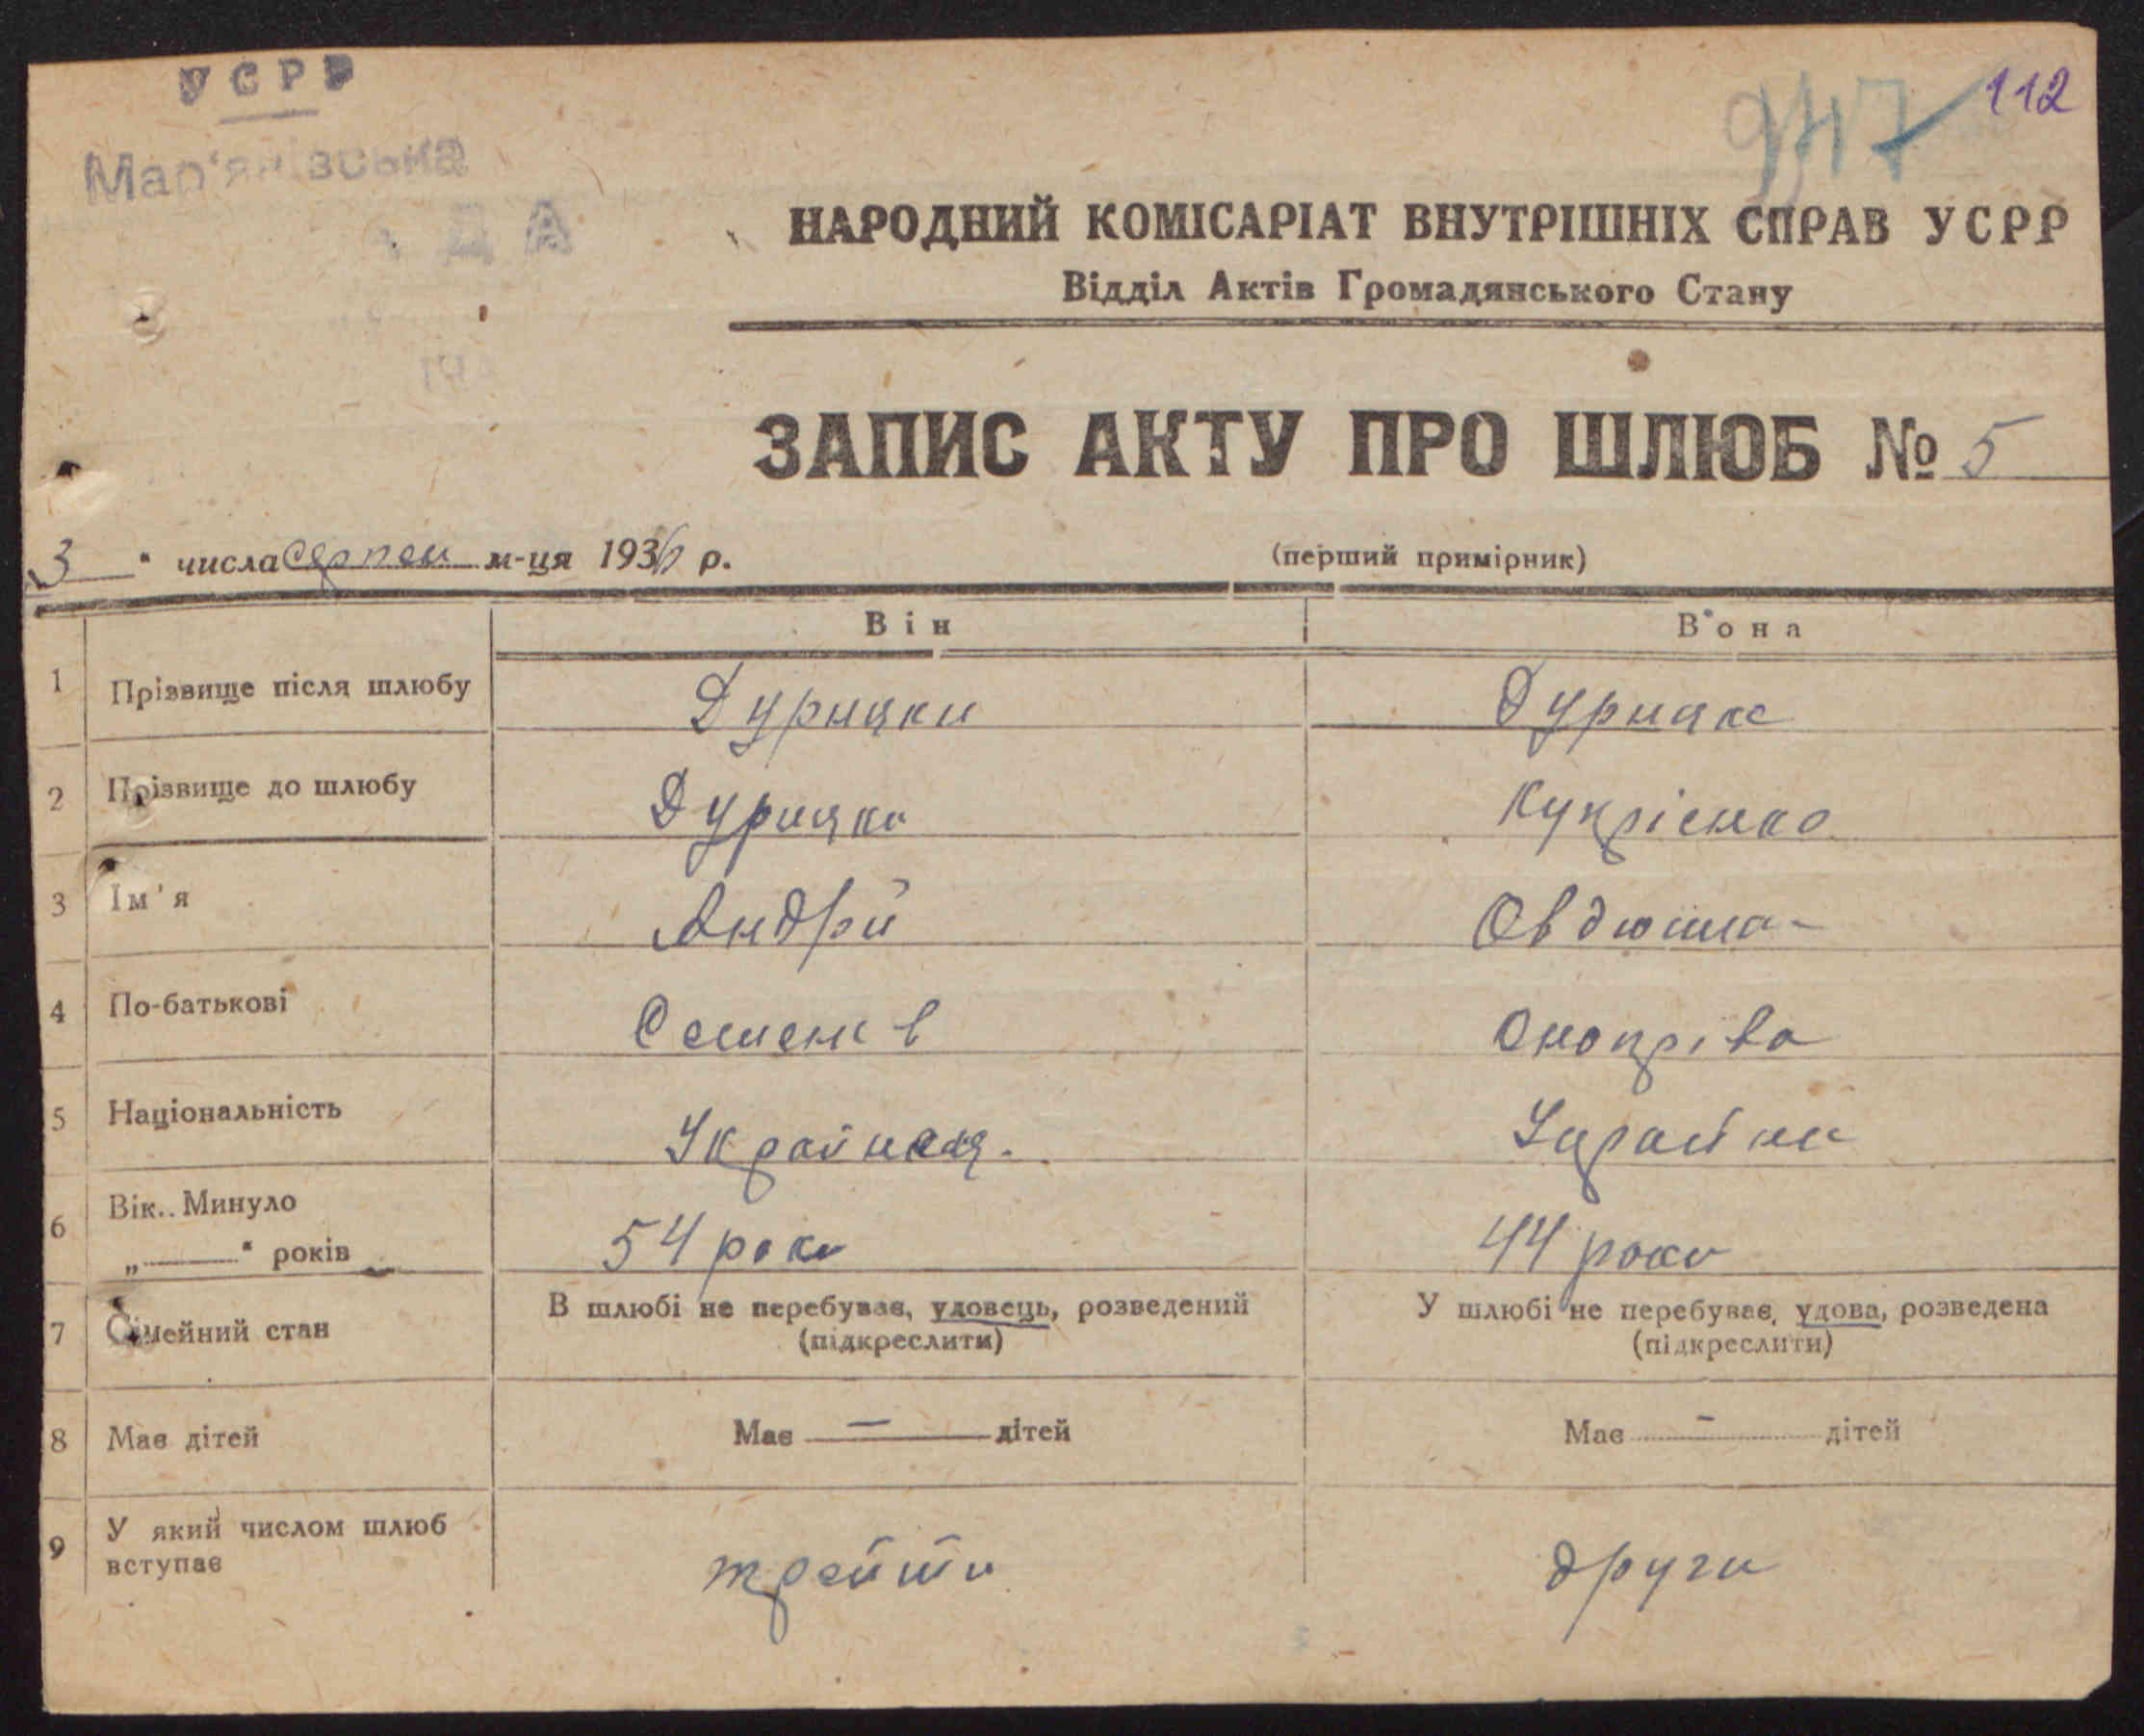 УСРР
Мар'янівська
ДА
112
947
НАРОДНИЙ КОМІСАРІАТ ВНУТРІШНІХ СПРАВ УСРР
Відділ Актів Громадянського Стану
ЗАПИС АКТУ ПРО ШЛЮБ № 5
3 " числа Серпен м-ця 1936 р. (перший примірник)
Він Вона
1 Прізвище після шлюбу Дурицки Дурицке
2 Прізвище до шлюбу Дурицки Купрієнко
3 Ім'я Андрій
4 По-батькові Семенів Онопріва
5 Національність Украйни
6 Вік.. Минуло
„ " років 54 роки 44 роки
7 Сімейний стан В шлюбі не перебував, удовець, розведений У шлюбі не перебував, удова, розведена
(підкреслити) (підкреслити)
8 Має дітей Має — дітей Має - дітей
9 У який числом шлюб
вступає трейти други